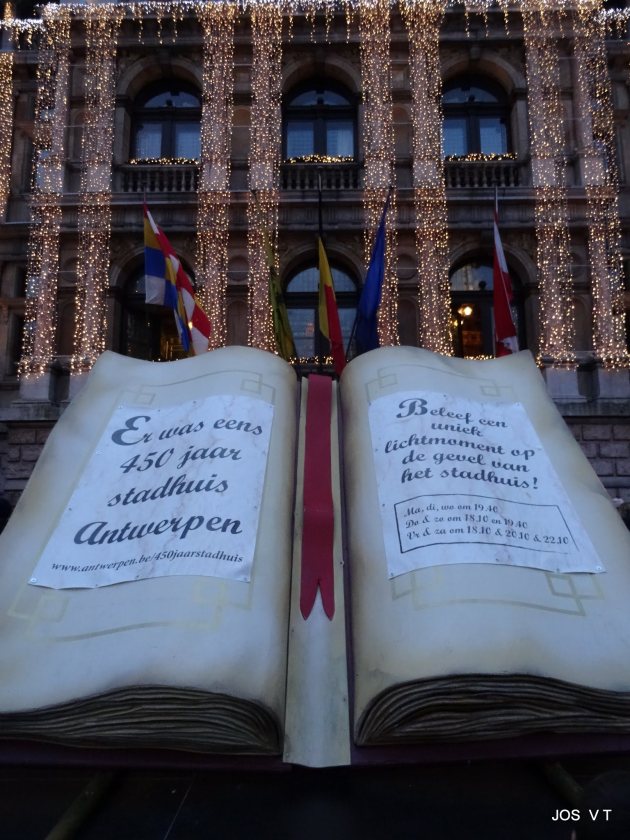 Er was eens
450 jaar
stadhuis
Antwerpen
www.antwerpen.be/450jaarstadhuis
Beleef een
uniek
lichtmoment op
de gevel van
het stadhuis!
Ma, di, wo om 19.40
Do & zo om 18.10 en 19.40
Vr & za om 18.10 & 20.10 & 22.10
JOS V T